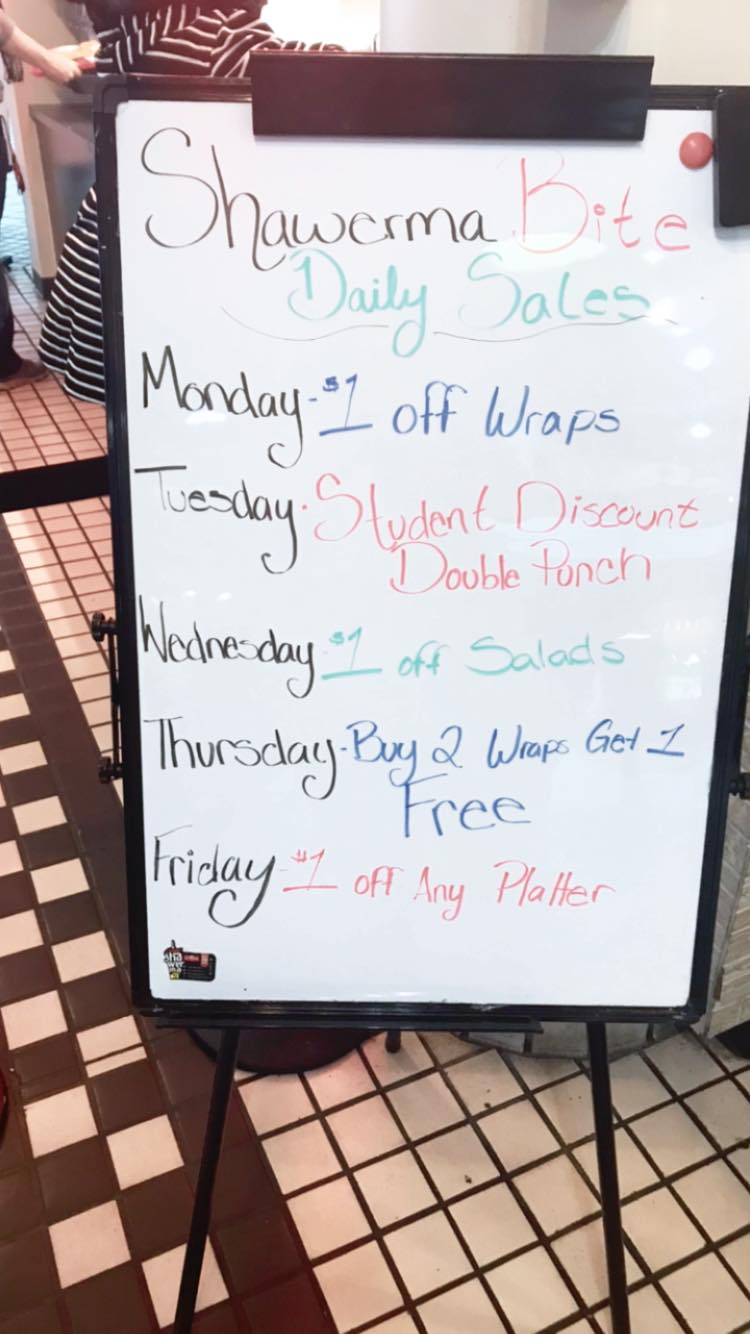 Shawerma Bite
Daily Sales
Monday-$1 off Wraps
Tuesday-Student Discount
Double Punch
Wednesday $1 off Salads
Thursday-Buy 2 Wraps Get 1
Free
Friday-$1 off Any Platter
sha
wer
ma